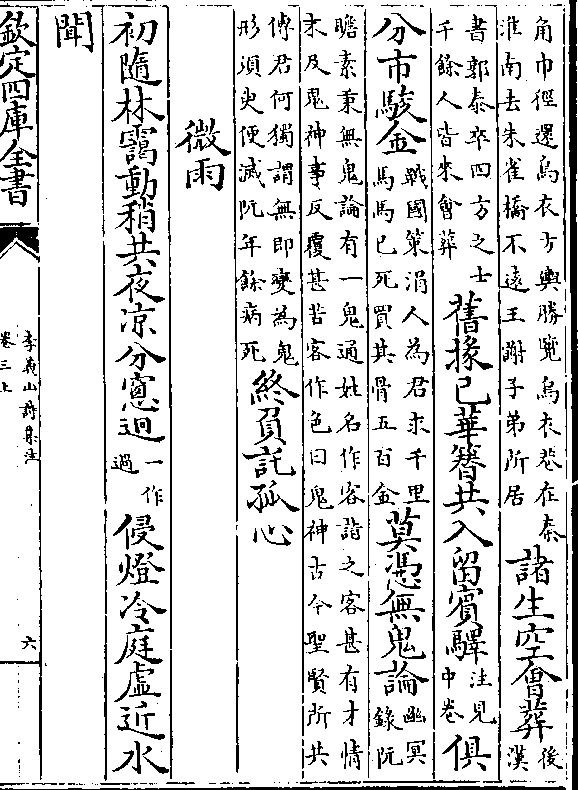 角巾徑還烏衣方輿勝覽烏衣巷在秦
淮南去朱雀橋不遠王謝子弟所居
諸生空會葬
後
漢
書郭泰卒四方之士
千餘人皆來會葬
舊掾已華簪共入留賓驛
注見
中卷
俱
分市駿金
戰國策涓人為君求千里
馬馬已死買其骨五百金
莫憑無鬼論
幽冥
錄阮
瞻素秉無鬼論有一鬼通姓名作客詣之客甚有才情
末及鬼神事反覆甚苦客作色曰鬼神古今聖賢所共
傳君何獨謂無即變為鬼
形須臾便滅阮年餘病死
終負託孤心
微雨
初隨林靄動稍共夜凉分窻迥
一作
過
侵燈冷庭虛近水
聞
欽定四庫全書
李義山詩集注
卷三上
六